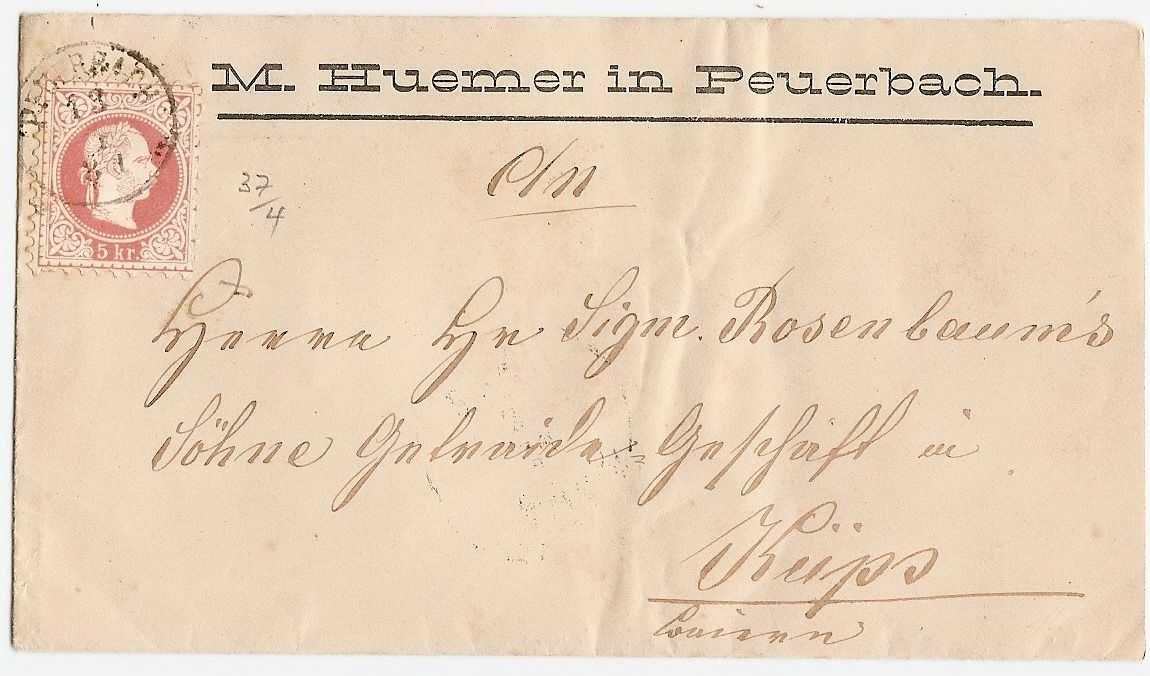 M. Huemer in Peuerbach.
PEUERBACH
5 kr.
37/4
An
Herrn Hr Sigm. Rosenbaum's
Söhne Getreide-Geschäft in
Küps
Baiern